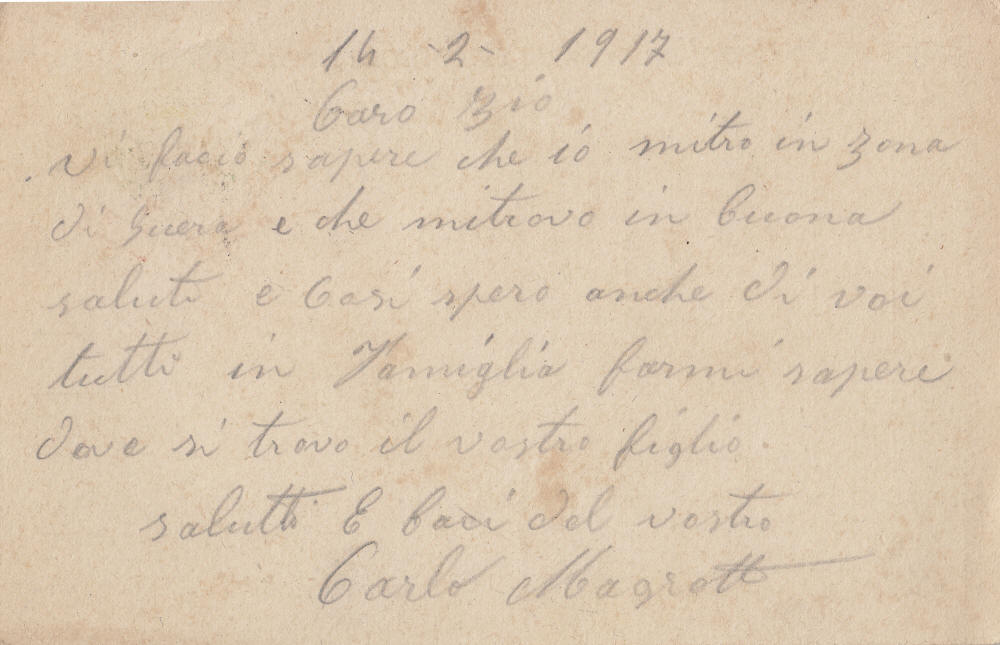 14 -2- 1917
Caro Zio
Vi facio sapere che io mitro in zona
di Guera e che mitrovo in buona
saluti e Cosi spero anche di voi
tutti in Famiglia farmi saperi
dove si trovo il vostro figlio.
salutti E baci del vostro
Carlo Magrott